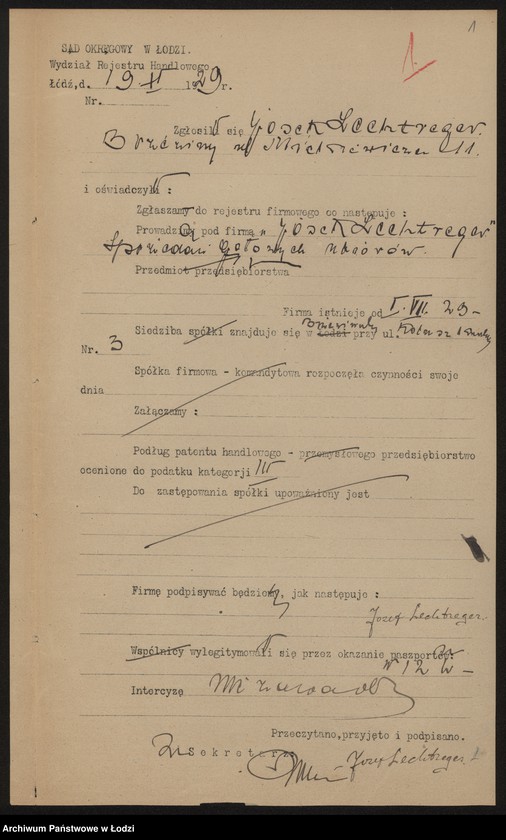 1
1.
SĄD OKRĘGOWY W ŁODZI.
Wydział Rejestru Handlowego
Łódź,d. 19 II 1929r.
Nr.
Zgłosił się Josek Lechtreger.
Brzeziny Mickiewicza 11.
i oświadczył :
Zgłaszamy do rejestru firmowego co następuje :
Prowadzę pod firmą „Josek Lechtreger"
Sprzedaż gotowych ubiorów.
Przedmiot przedsiębiorstwa
Firma istnieje od 1.VII. 29
Siedziba spółki znajduje się w Łodzi przy ul.
Nr. 3
Spółka firmowa - komandytowa rozpoczęła czynności swoje
dnia
Załączamy :
Podług patentu handlowego - przemysłowego przedsiębiorstwo
ocenione do podatku kategorji III
Do zastępowania spółki upoważniony jest
Firmę podpisywać będzie, jak następuje :
Jozef Lechtreger.
Wspólnicy wylegitymował się przez okazanie paszportów:
Intercyzę
Przeczytano,przyjęto i podpisano.
Sekretarz
Jozef Lechtreger
Archiwum Państwowe w Łodzi